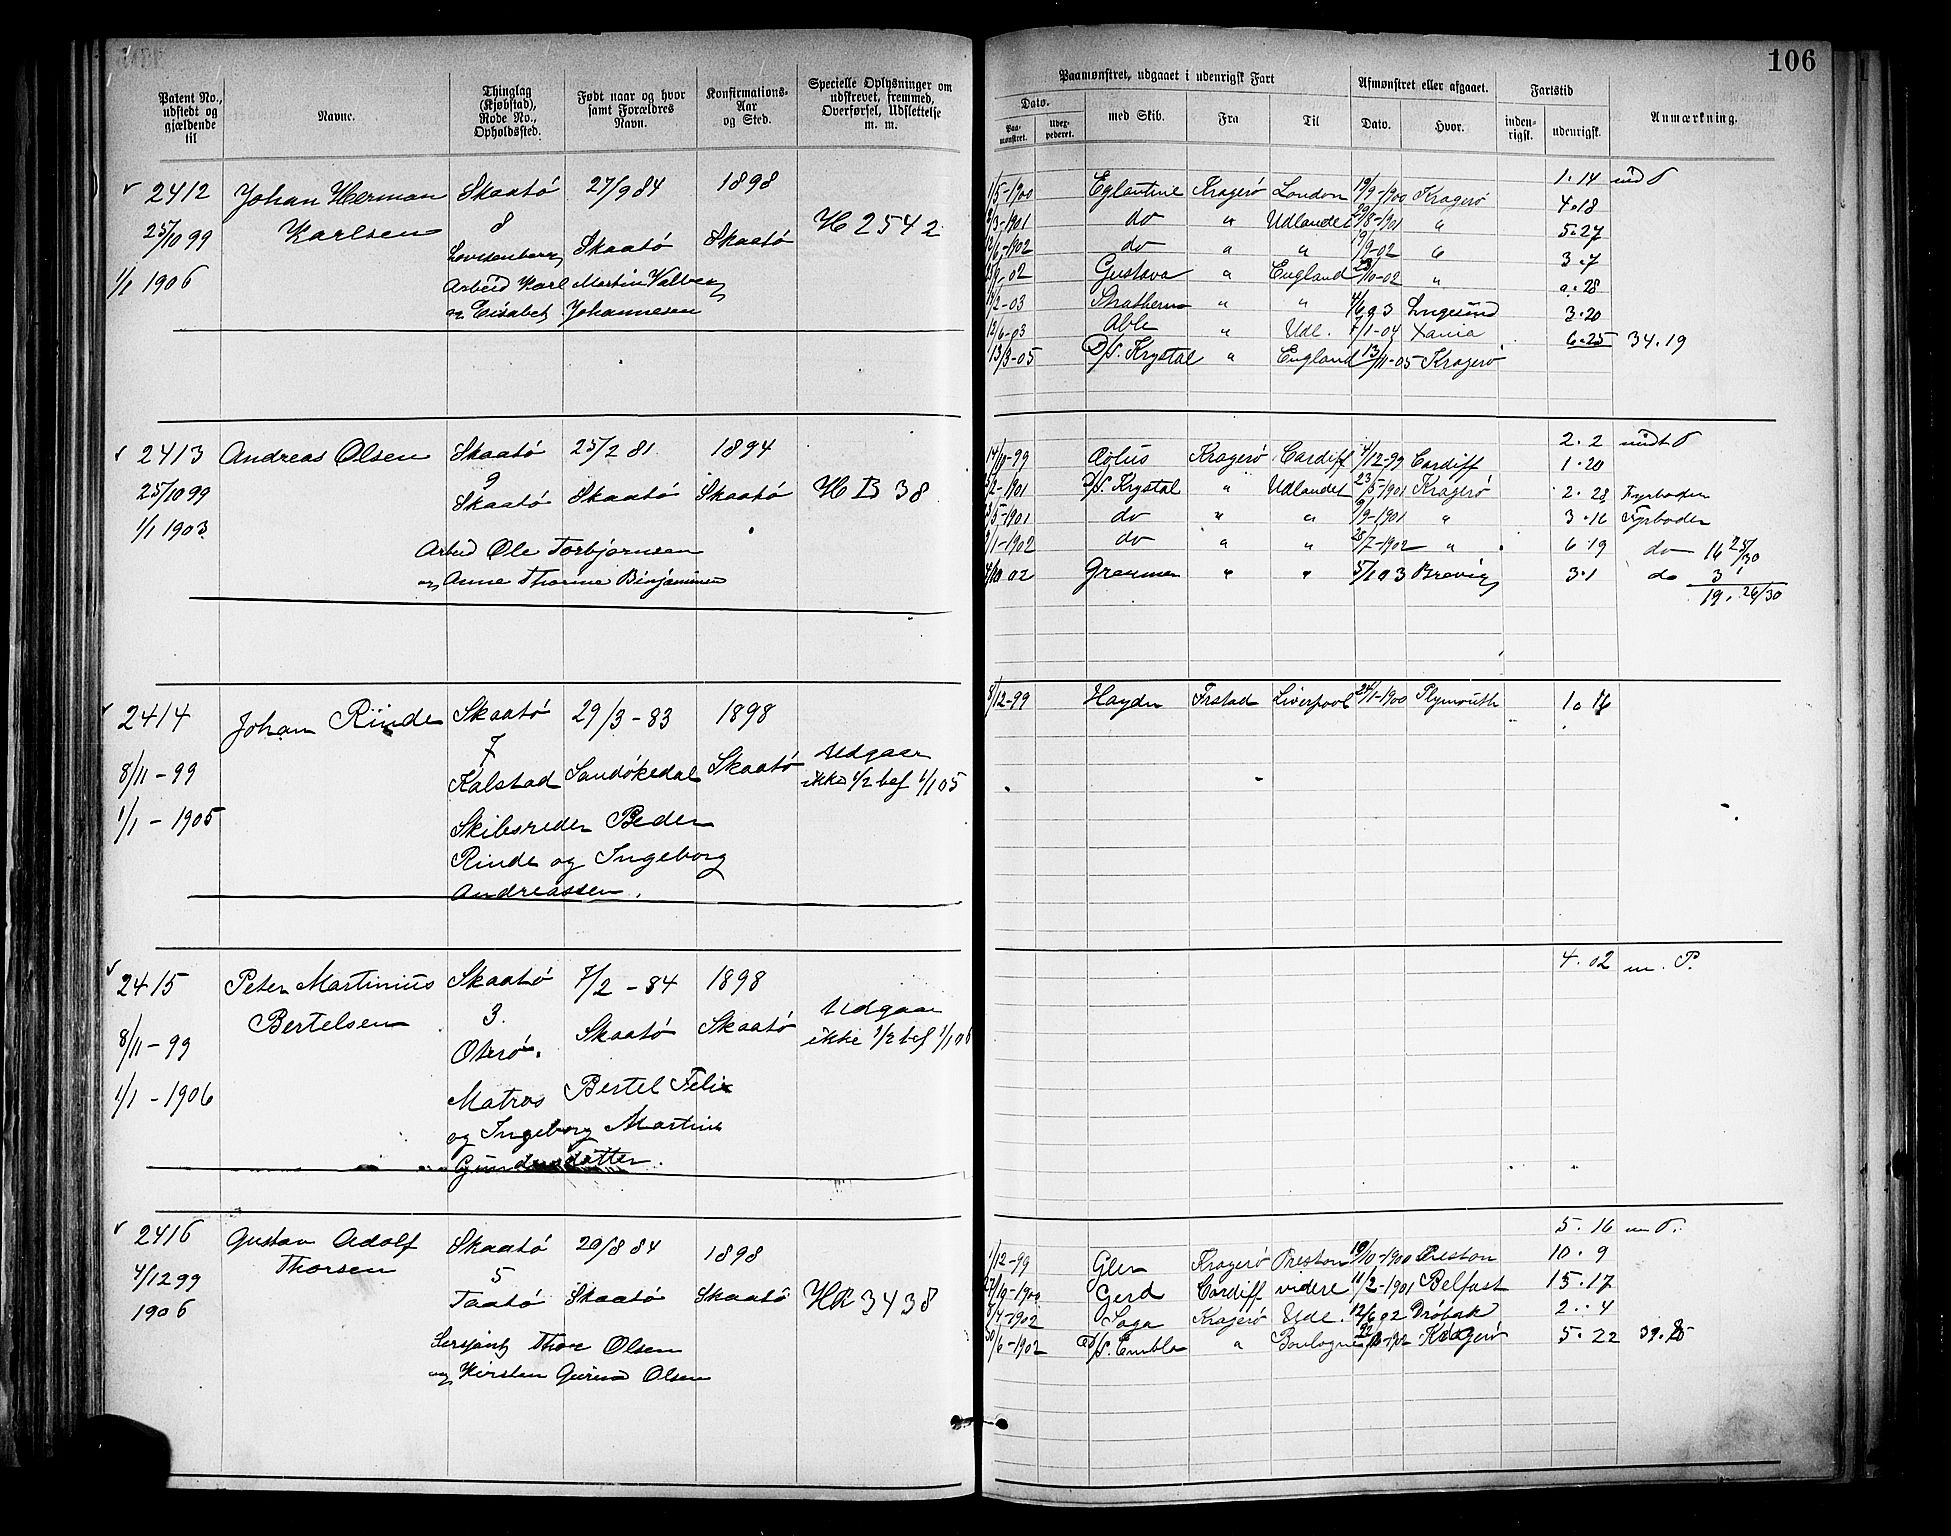 106
Patent No., udstedt og gjældende til
Navne.
Thinglag (Kjøbstad), Rode No., Opholdssted.
Født naar og hvor samt Forældres Navn.
Konfirmations-Aar og Sted.
Specielle Oplysninger om udskrevet, fremmed, Overførsel, Udslettelse m. m.
Paamønstret, udgaaet i udenrigsk Fart
Afmønstret eller afgaaet.
Fartstid
Dato.
Paamønstret.
udexpederet.
med Skib.
Fra
Til
Dato.
Hvor.
indenrigsk.
udenrigsk.
Anmærkning.
2412 Johan Herman Skaatø 27/9 84 1898
25/10 99 Karlsen 8 Skaatø Skaatø H 2542
1/1 1906 Arbeid Karl Martin Valberg
og Elisabet Johannesen
1.14
1/5-1900 Eglantine Kragerø London 19/9-1900 Kragerø 4.18
do " Udlandet 29/8-1901 " 5.27
12/6-1902 do " " 19/9-02 " 3.7
Gustava " England 10-02 " 0.28
" " Langesund 3.20
12/6-03 Able " Udl. 7/1-04 Xania 6.25 34.19
13/3-05 D/S. Krystal " England 13/11-05 Kragerø
2413 Andreas Olsen Skaatø 25/2 81 1894
25/10 99 9 Skaatø Skaatø Skaatø H B 38
1/1 1903
Arbeid Ole Torbjørnsen
og Anne Thorine Binjaminsen
2.2
14/10-99 Æolus Kragerø Cardiff 4/12-99 Cardiff 1.20
D/S. Krystal " Udlandet 23/5-1901 Kragerø 2.28 Fyrbøder
do " " 9/9-1901 " 3.16 Fyrbøder
do " " 28/7-1902 " 6.19 do 16 25/30
" " 5/1 03 Brevig 3.1 do 3 1
19. 26/30
2414 Johan Rinde Skaatø 29/3-83 1898
8/11-99 7 Kalstad Sandøkedal Skaatø Udgaar ikke 1/2 bef 1/1 05
1/1-1905 Skibsreder Peder
Rinde og Ingeborg
Andreassen.
8/12-99 Haydn Frstad Liverpool 24/1-1900 Plymouth 1.16
2415 Peter Martinius Skaatø 7/2-84 1898
Bertelsen 3. Skaatø Skaatø Udgaar
8/11-99 Oterø. ikke 1/2 bef 1/1 06
1/1-1906 Matros Bertel Felix
og Ingeborg Martine
Gundersdatter.
4.02 m. P.
2416 Gustav Adolf Skaatø 20/8 84 1898
4/12 99 Thorsen 5
1906 Taatø Skaatø Skaatø HR 3438
Serjant Thore Olsen
og Kirsten Gurine Olsen
5.16 m P.
1/12-99 Glen Kragerø Preston 19/10-1900 Preston 10.9
27/10-1900 Gerd Cardiff videre 11/2-1901 Belfast 15.17
Saga Kragerø Udl. 12/6 02 Drøbak 2.4
30/6-1902 D/S. Embla " Boulogne Kragerø 5.22